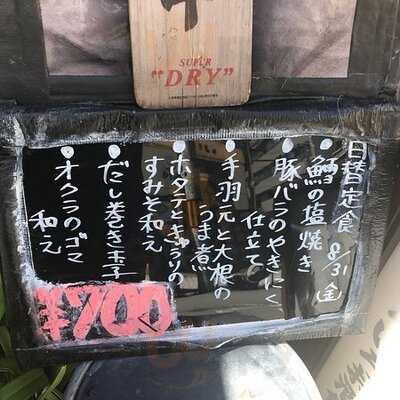 SUPER
"DRY"
日替定食 8/31(金)
・の塩焼き
・豚バラのやきにく、
仕立て
・手羽元と大根の
うま煮
・ホタテときゅうりの
すみそ和え
・だし巻き玉子
・オクラのゴマ
和え
¥700